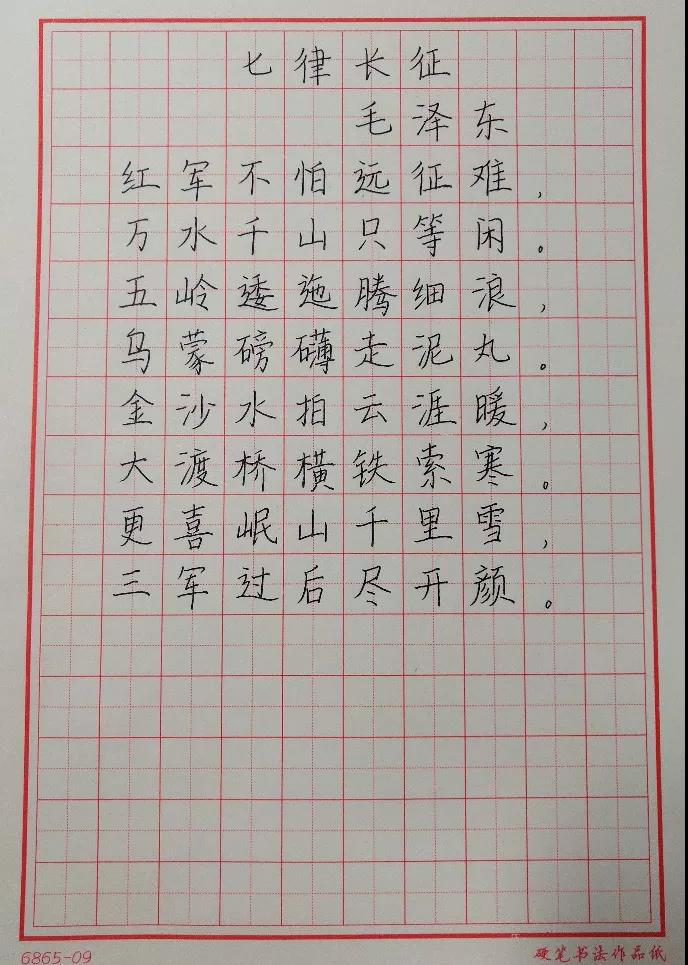 七律长征
毛泽东
红军不怕远征难，
万水千山只等闲。
五岭逶迤腾细浪，
乌蒙磅礴走泥丸。
金沙水拍云涯暖，
大渡桥横铁索寒。
更喜岷山千里雪，
三军过后尽开颜。
6865-09
硬笔书法作品纸